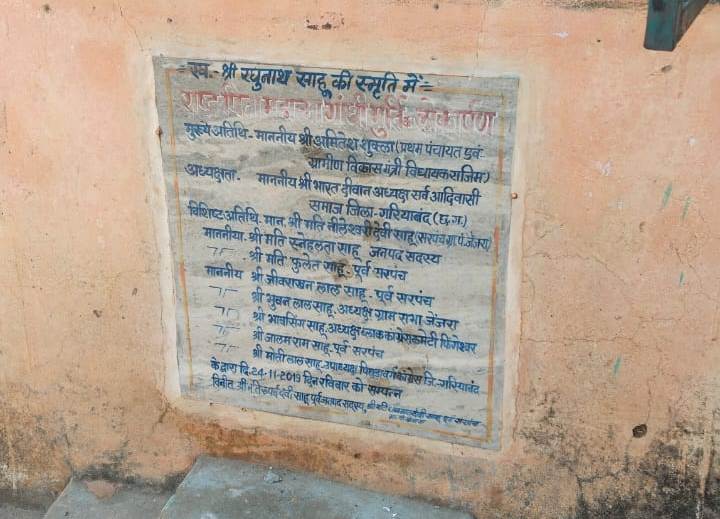 = स्व.- श्री रघुनाथ साहू की स्मृति में =
राष्ट्रपिता महात्मा गांधी मुर्ति लोकार्पण
मुख्य अतिथि - माननीय श्री अमितेश शुक्ला (प्रथम पंचायत एवं
ग्रामीण विकास मंत्री विधायक राजिम)
अध्यक्षता - माननीय श्री भारत दीवान अध्यक्ष सर्व आदिवासी
समाज जिला - गरियाबंद (छ.ग.)
विशिष्ट अतिथि - मान. श्री मति नीलेश्वरी देवी साहू (सरपंच ग्रा.पं. जेंजरा)
माननीया - श्री मति स्नेहलता साहू जनपद सदस्य
श्री मति फुलेत साहू - पूर्व सरपंच
माननीय श्री जीवराखन लाल साहू - पूर्व सरपंच
श्री भुवन लाल साहू - अध्यक्ष ग्राम सभा जेंजरा
श्री भावसिंग साहू - अध्यक्ष ब्लाक कांग्रेस कमेटी फिंगेश्वर
श्री जालम राम साहू - पूर्व सरपंच
श्री मोती लाल साहू - उपाध्यक्ष पिछड़ा वर्ग कांग्रेस जि.- गरियाबंद
के द्वारा दि. 24-11-2019 दिन रविवार को सम्पन्न
विनीत श्री मति देवी साहू पूर्व जनपद सदस्य